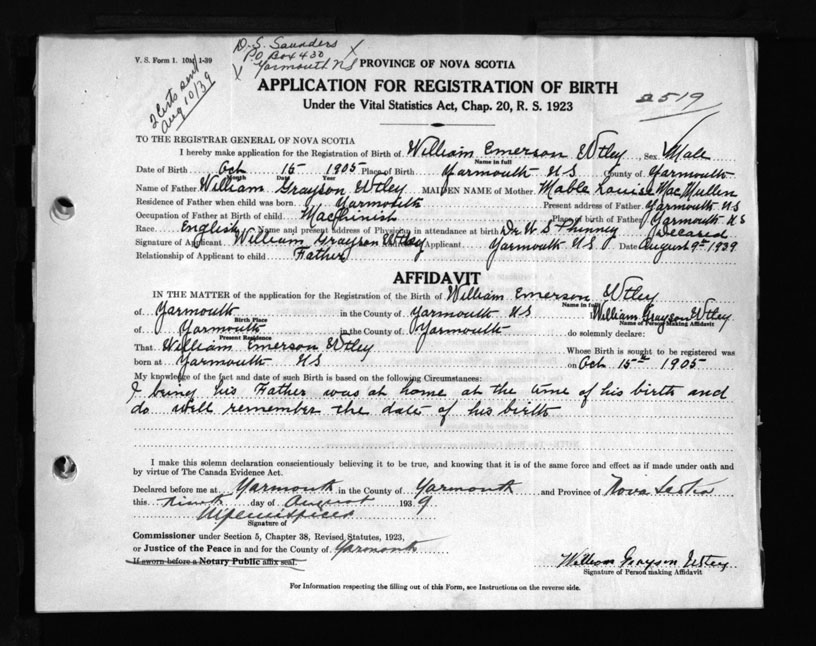 V. S. Form 1. 10M 1-39
D. S. Saunders
P.O. Box 430
Yarmouth NS
2 Certs sent
Aug 10/39
PROVINCE OF NOVA SCOTIA
APPLICATION FOR REGISTRATION OF BIRTH
Under the Vital Statistics Act, Chap. 20, R. S. 1923
2519
TO THE REGISTRAR GENERAL OF NOVA SCOTIA
I hereby make application for the Registration of Birth of William Emerson Utley Sex Male
Name in full
Date of Birth Oct 15 1905 Place of Birth Yarmouth N S County of Yarmouth
Month Date Year
Name of Father William Grayson Utley MAIDEN NAME of Mother Mable Louise MacMullen
Residence of Father when child was born Yarmouth Present address of Father Yarmouth N S
Occupation of Father at Birth of child Machinist Place of birth of Father Yarmouth N S
Race English Name and present address of Physician in attendance at birth Dr. W S Phinney Decared
Signature of Applicant William Grayson Utley Applicant Yarmouth N S Date August 9th 1939
Relationship of Applicant to child Father
AFFIDAVIT
IN THE MATTER of the application for the Registration of the Birth of William Emerson Utley
Name in full
of Yarmouth in the County of Yarmouth N S I William Grayson Utley
Birth Place Name of Person Making Affidavit
of Yarmouth in the County of Yarmouth do solemnly declare:
Present Residence
That William Emerson Utley Whose Birth is sought to be registered was
born at Yarmouth N S on Oct 15th 1905
My knowledge of the fact and date of such Birth is based on the following Circumstances:
I being his Father was at home at the time of his birth and
do well remember the date of his birth
I make this solemn declaration conscientiously believing it to be true, and knowing that it is of the same force and effect as if made under oath and
by virtue of The Canada Evidence Act.
Declared before me at Yarmouth in the County of Yarmouth and Province of Nova Scotia
this Ninth day of August 1939
Signature of
Commissioner under Section 5, Chapter 38, Revised Statutes, 1923,
or Justice of the Peace in and for the County of Yarmouth
If sworn before a Notary Public affix seal.
William Grayson Utley
Signature of Person making Affidavit
For Information respecting the filling out of this Form, see Instructions on the reverse side.